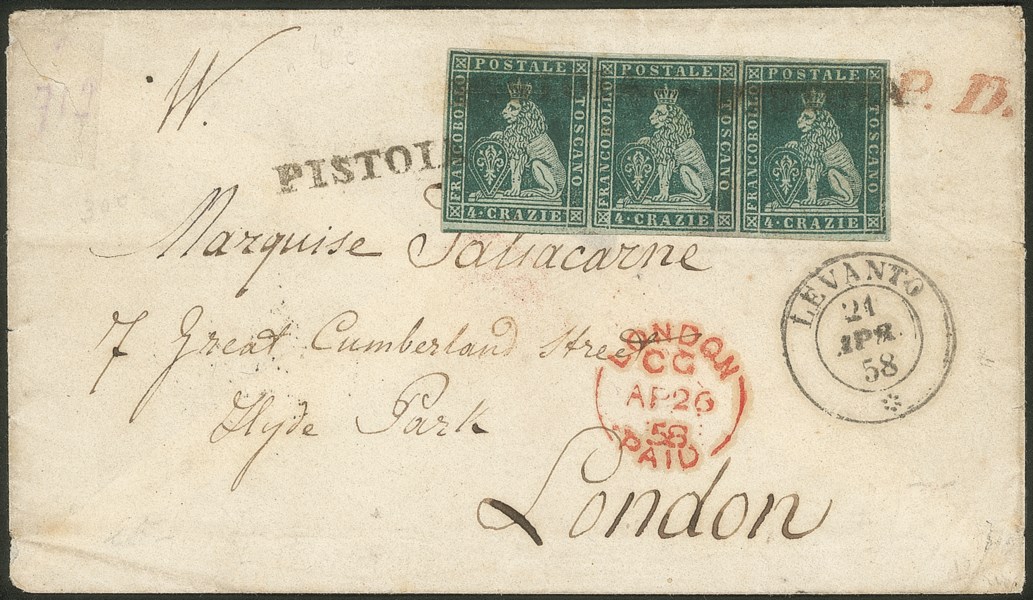 W.
712
POSTALE POSTALE POSTALE
FRANCOBOLLO TOSCANO FRANCOBOLLO TOSCANO FRANCOBOLLO TOSCANO
4·CRAZIE 4·CRAZIE 4·CRAZIE
P. D.
PISTOI
Marquise Saliacarne
7 Great Cumberland Street
Hyde Park
London
LEVANTO
21
APR.
58
LONDON
CG
AP 26
58
PAID